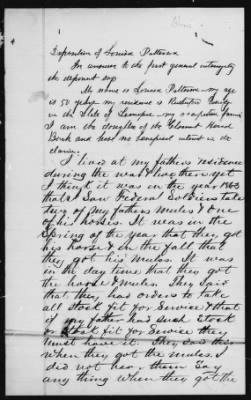 Deposition of Louisa Patterson
In answer to the first general interrogatory
the deponent says
My name is Louisa Patterson my age
is 50 years my residence is County
in the State of Tennessee my occupation farming
I am the daughter of the Claimant
and have no beneficial interest in the
claim.
I lived at my fathers residence
during the war & live there yet
I think it was in the year 1863
that I Saw Federal Soldiers take
two of my fathers mules & one
of his horses. It was in the
Spring of the year that they got
his horse & in the fall that
they got his mules. It was
in the day time that they got
the horse & mules. They Said
that they had orders to take
all Stock fit for Service & that
if my father had such Stock
or Stock fit for Service they
must have it. They Said this
when they got the mules. I
did not hear them Say
any thing when they got the